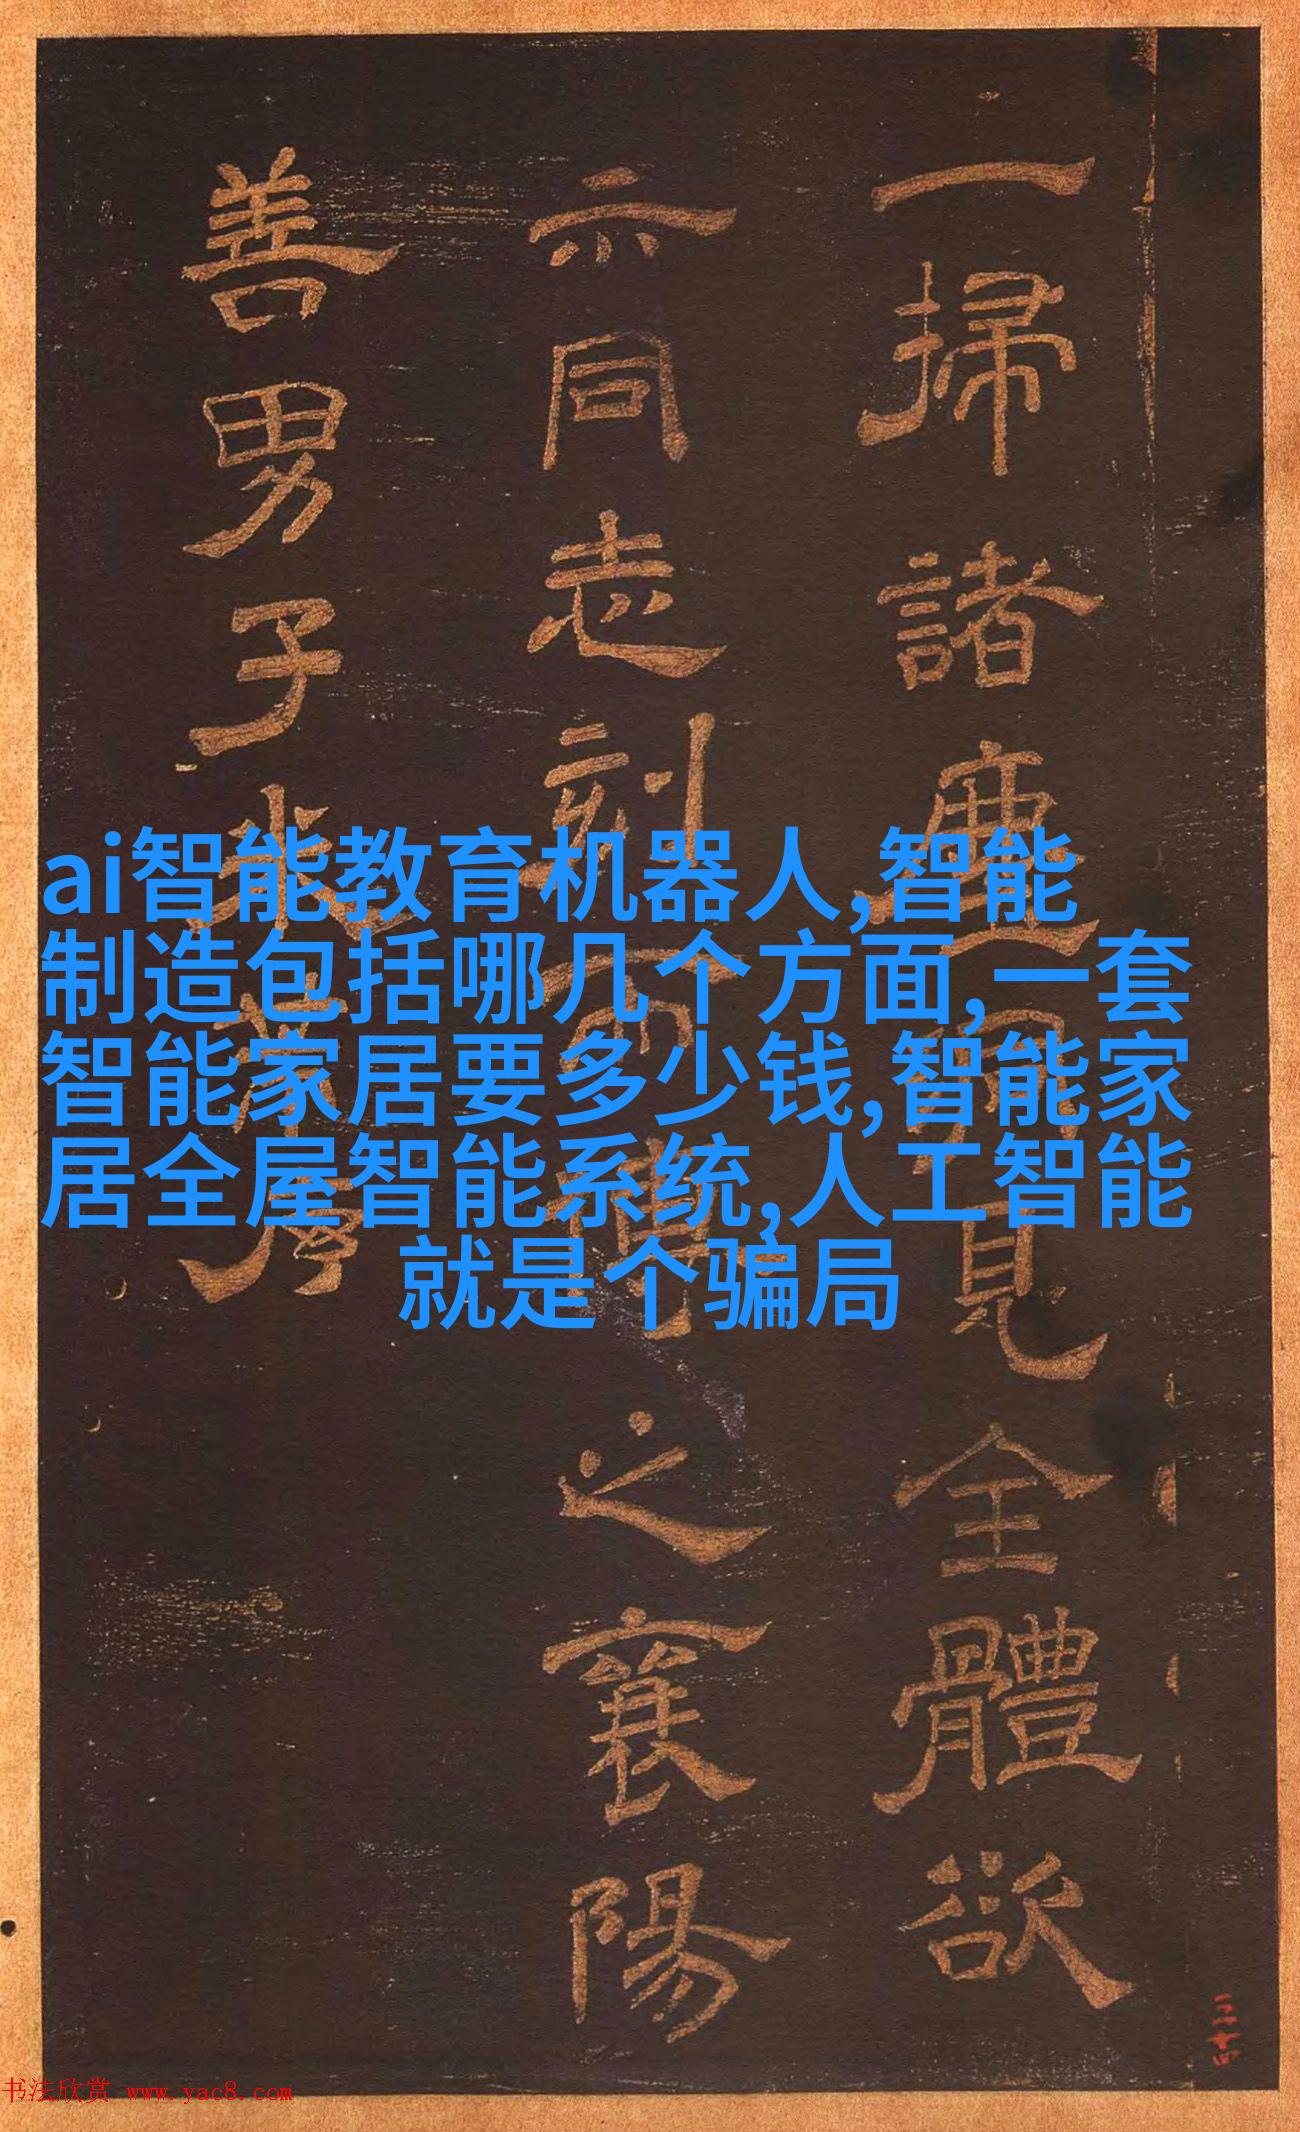 一掃諸塵网見全體欲
示同志刻而傳之襄陽
善男子裴
ai智能教育机器人,智能
制造包括哪几个方面,一套
智能家居要多少钱,智能家
居全屋智能系统,人工智能
就是个骗局
三十四
书法欣赏 www.yac8.com